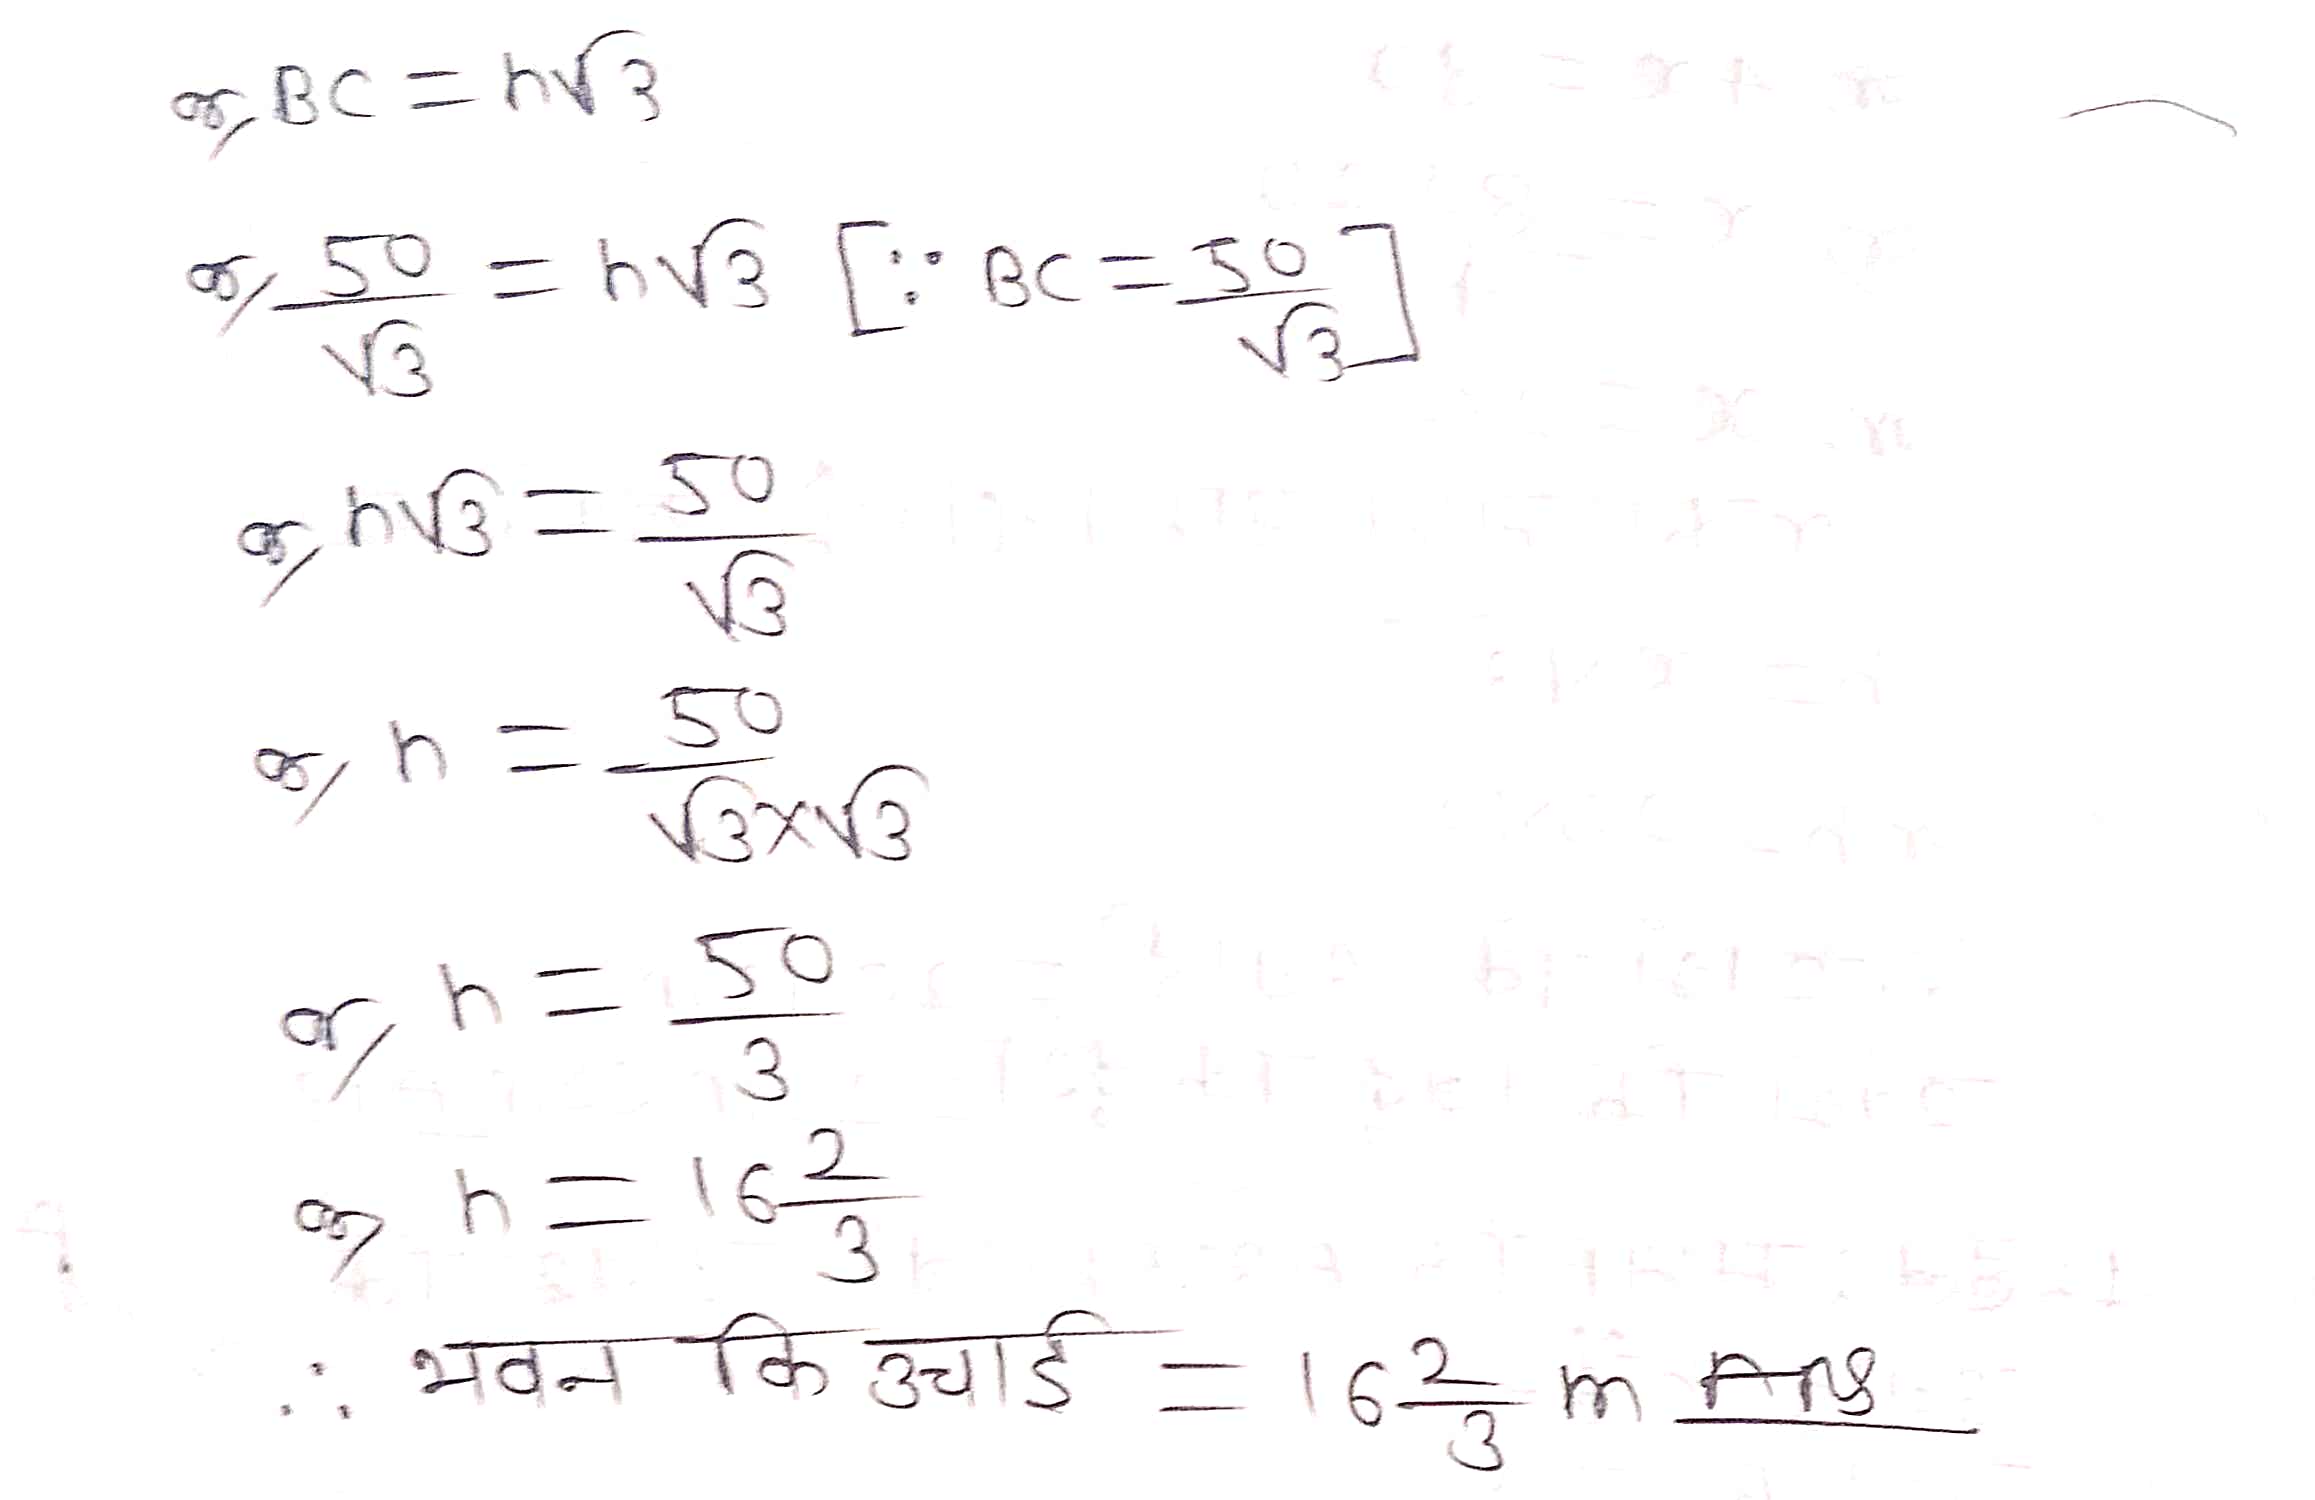 or, BC = h√3
or, 50/√3 = h√3 [∵ BC = 50/√3]
or, h√3 = 50/√3
or, h = 50/√3×√3
or, h = 50/3
or, h = 16 2/3
∴ भवन कि उचाई = 16 2/3 m Ans